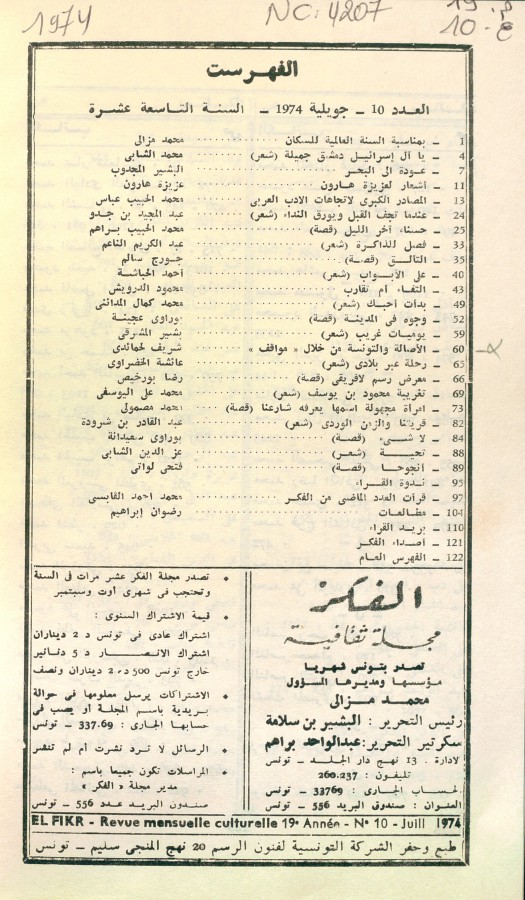 1974
NC: 4207
الفهرست
العدد 10 – جويلية 1974 – السنة التاسعة عشرة
1 – بمناسبة السنة العالمية للسكان محمد مزالى
4 – يا آل إسرائيل دمشق جميلة (شعر) محمد الشابى
7 – عودة الى البحر البشير المجدوب
11 – أشعار لعزيزة هارون عزيزة هارون
13 – المصادر الكبرى لاتجاهات الادب العربى محمد الحبيب عباس
24 – عندما تجف القبل ويورق النداء (شعر) عبد المجيد بن جدو
25 – حسناء آخر الليل (قصة) محمد الحبيب براهم
33 – فصل للذاكرة (شعر) عبد الكريم الناعم
35 – التالق (قصة) جورج سالم
40 – على الأبواب (شعر) أحمد الحباشة
43 – التقاء أم تقارب محمود الدرويش
49 – بدأت أحبك (شعر) محمد كمال المدائنى
52 – وجوه فى المدينة (قصة) بوراوى عجينة
59 – يوميات غريب (شعر) بشير المشرقى
60 – الأصالة والتونسة من خلال « مواقف » شريف لحمائدى
65 – رحلة عبر بلادى (شعر) عائشة الخضراوى
66 – معرض رسم لافريقى (قصة) رضا بورخيص
69 – تغريبة محمود بن يوسف (شعر) محمد على اليوسفى
73 – امرأة مجهولة اسمها يعرفه شارعنا (قصة) محمد مصمولى
82 – قريتنا والزمن الوردى (شعر) عبد القادر بن شرودة
84 – لا شىء (قصة) بوراوى سعيدانة
88 – تحية (شعر) عز الدين الشابى
89 – أنجوحا (قصة) فتحى لواتى
95 – ندوة القراء
97 – قرأت العدد الماضى من الفكر محمد احمد القابسى
104 – مطالعات رضوان إبراهيم
110 – بريد القراء
121 – أصداء الفكر
122 – الفهرس العام
الفكر
مجلة ثقافية
تصدر بتونس شهريا
مؤسسها ومديرها المسؤول
محمد مزالى
رئيس التحرير : البشير بن سلامة
سكرتير التحرير : عبدالواحد براهم
لادارة . 13 نهج دار الجلد – تونس
تليفون : 260.237
لحساب الجارى : 33769 – تونس
العنوان : صندوق البريد 556 – تونس
• تصدر مجلة الفكر عشر مرات فى السنة
وتحتجب فى شهرى أوت وسبتمبر
• قيمة الاشتراك السنوى :
اشتراك عادى فى تونس د 2 ديناران
اشتراك الانصار د 5 دنانير
خارج تونس 500 د. 2 ديناران ونصف
• الاشتراكات يرسل معلومها فى حوالة
بريدية باسم المجلة أو يصب فى
حسابها الجارى : 337.69 – تونس
• الرسائل لا ترد نشرت أم لم تنشر
• المراسلات تكون جميعا باسم :
مدير مجلة « الفكر »
صندون البريد عدد 556 – تونس
EL FIKR - Revue mensuelle culturelle 19e Année - No 10 - Juill 1974
طبع وحفر الشركة التونسية لفنون الرسم 20 نهج المنجى سليم – تونس